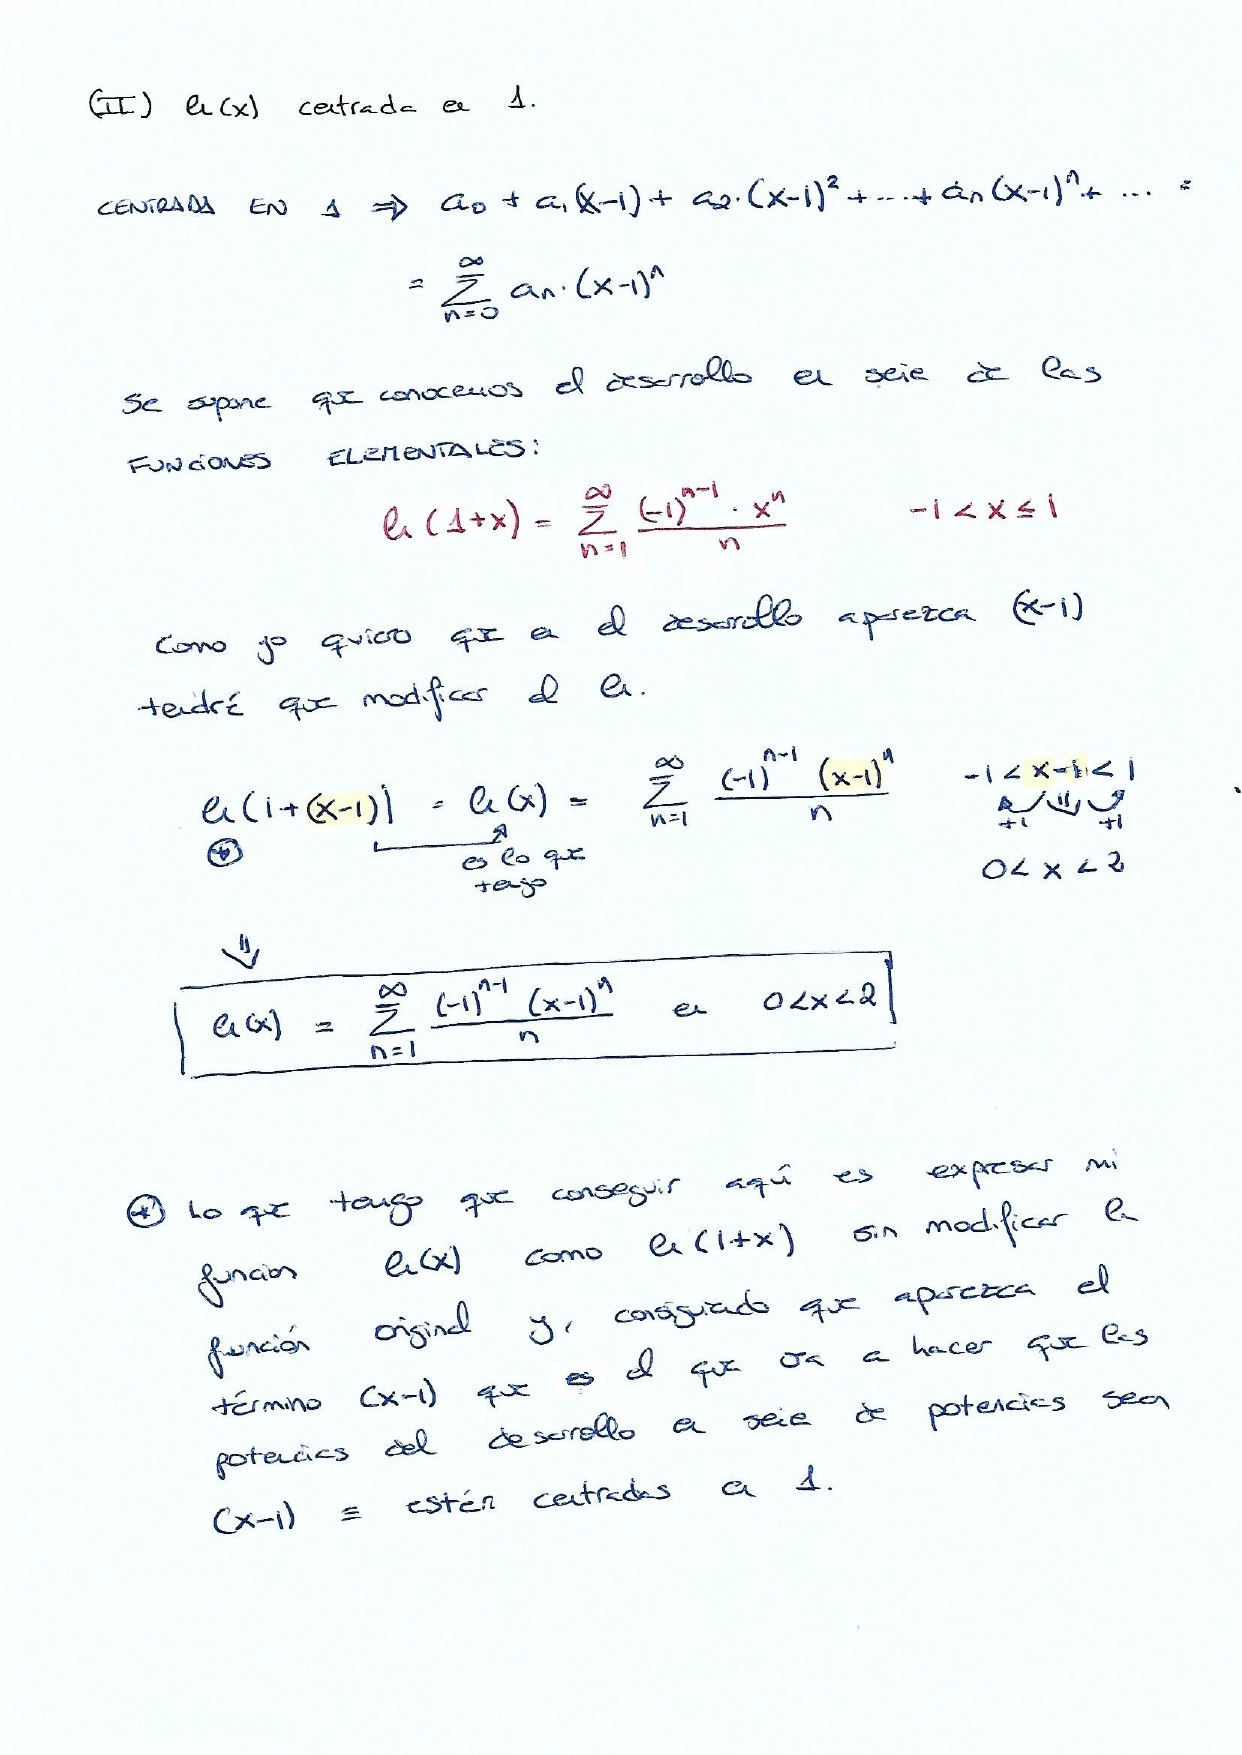 (II) ln(x) centrada en 1.
CENTRADA EN 1 ⇒ a₀ + a₁(x-1) + a₂·(x-1)² + ... + aₙ(x-1)ⁿ + ... =
= ∑_{n=0}^{∞} aₙ·(x-1)ⁿ
Se supone que conocemos el desarrollo en serie de las
FUNCIONES ELEMENTALES:
ln(1+x) = ∑_{n=1}^{∞} (-1)^{n-1} · xⁿ / n    -1 < x ≤ 1
Como yo quiero que en el desarrollo aparezca (x-1)
tendré que modificar el ln.
ln(1+(x-1)) = ln(x) = ∑_{n=1}^{∞} (-1)^{n-1} (x-1)ⁿ / n    -1 < x-1 < 1
(*) es lo que +1 ⇓ +1
tengo 0 < x < 2
⇓
ln(x) = ∑_{n=1}^{∞} (-1)^{n-1} (x-1)ⁿ / n en 0<x<2
(*) Lo que tengo que conseguir aquí es expresar mi
función ln(x) como ln(1+x) sin modificar la
función original y, consiguiendo que aparezca el
término (x-1) que es el que va a hacer que las
potencias del desarrollo en serie de potencias sean
(x-1) ≡ estén centradas en 1.